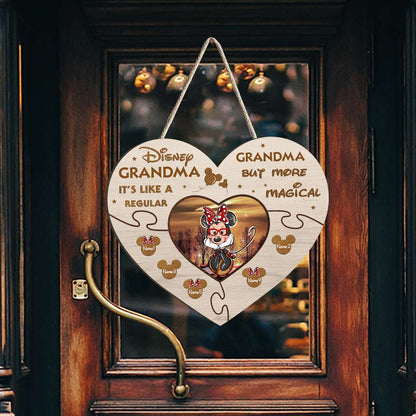 Disney
GRANDMA
IT'S LIKE A
REGULAR
GRANDMA
BUT MORE
MAGICAL
Name1
Name2
Name3
Name4
Name5